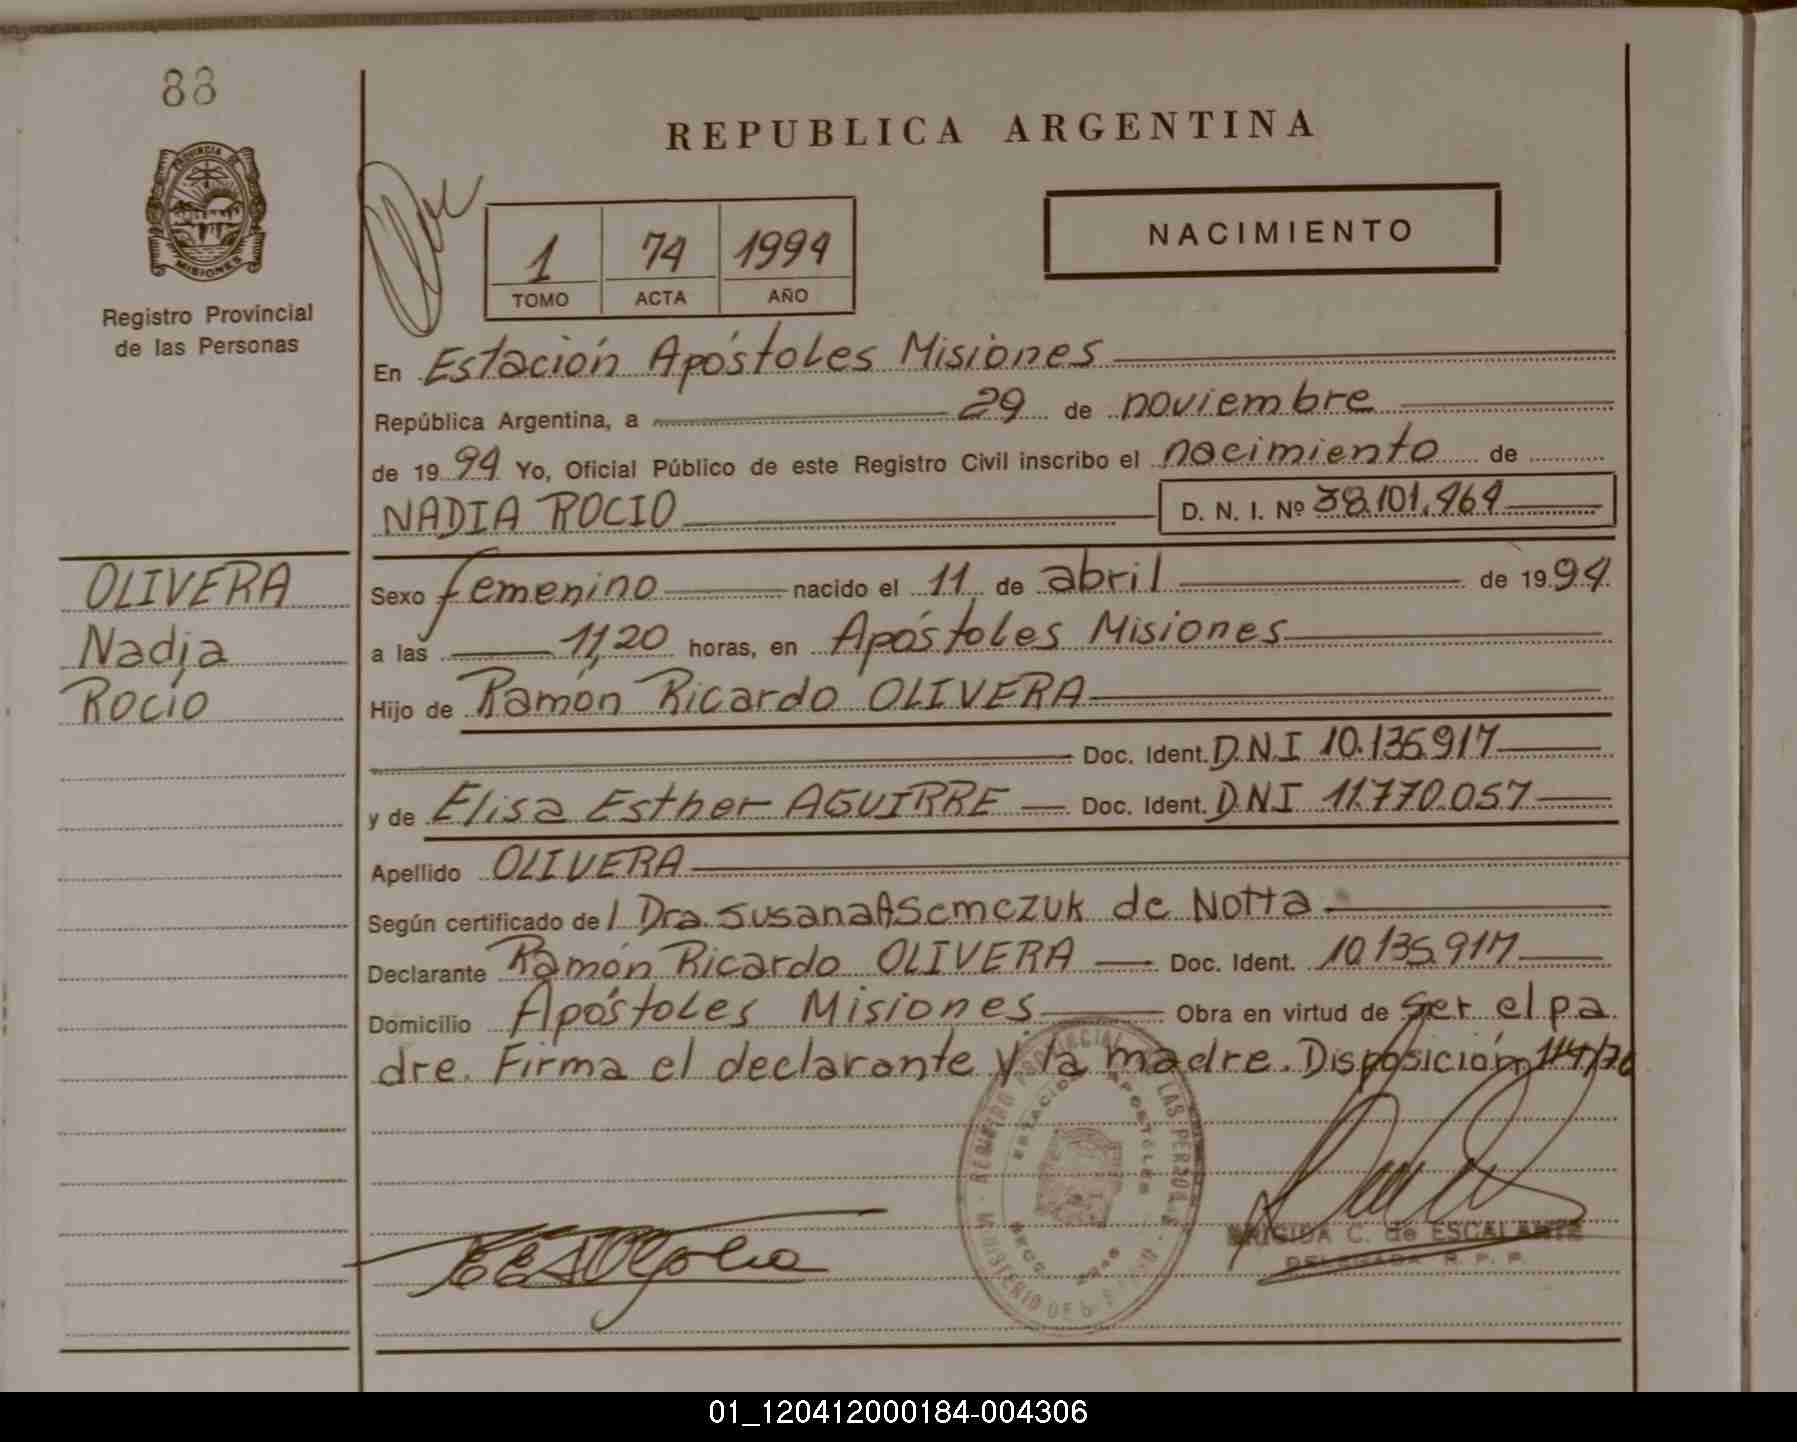 88
REPUBLICA ARGENTINA
PROVINCIA DE
MISIONES
Registro Provincial
de las Personas
1 74 1994
TOMO ACTA AÑO
NACIMIENTO
En Estación Apóstoles Misiones
República Argentina, a 29 de noviembre
de 1994 Yo, Oficial Público de este Registro Civil inscribo el nacimiento de
NADIA ROCIO D. N. I. Nº 38.101.464
OLIVERA
Nadia
Rocío
Sexo femenino nacido el 11 de abril de 1994.
a las 11,20 horas, en Apóstoles Misiones
Hijo de Ramón Ricardo OLIVERA
Doc. Ident. D.N.I 10.135.917
y de Elisa Esther AGUIRRE Doc. Ident. D.N.I 11.770.057
Apellido OLIVERA
Según certificado de / Dra. Susana A Semczuk de Notta
Declarante Ramón Ricardo OLIVERA Doc. Ident. 10.135.917
Domicilio Apóstoles Misiones Obra en virtud de ser el pa
dre. Firma el declarante y la madre. Disposición 114/76
REGISTRO PROVINCIAL DE LAS PERSONAS
ESTACION APOSTOLES
BRIGIDA C. de ESCALANTE
DELEGADA R. P. P.
01_120412000184-004306